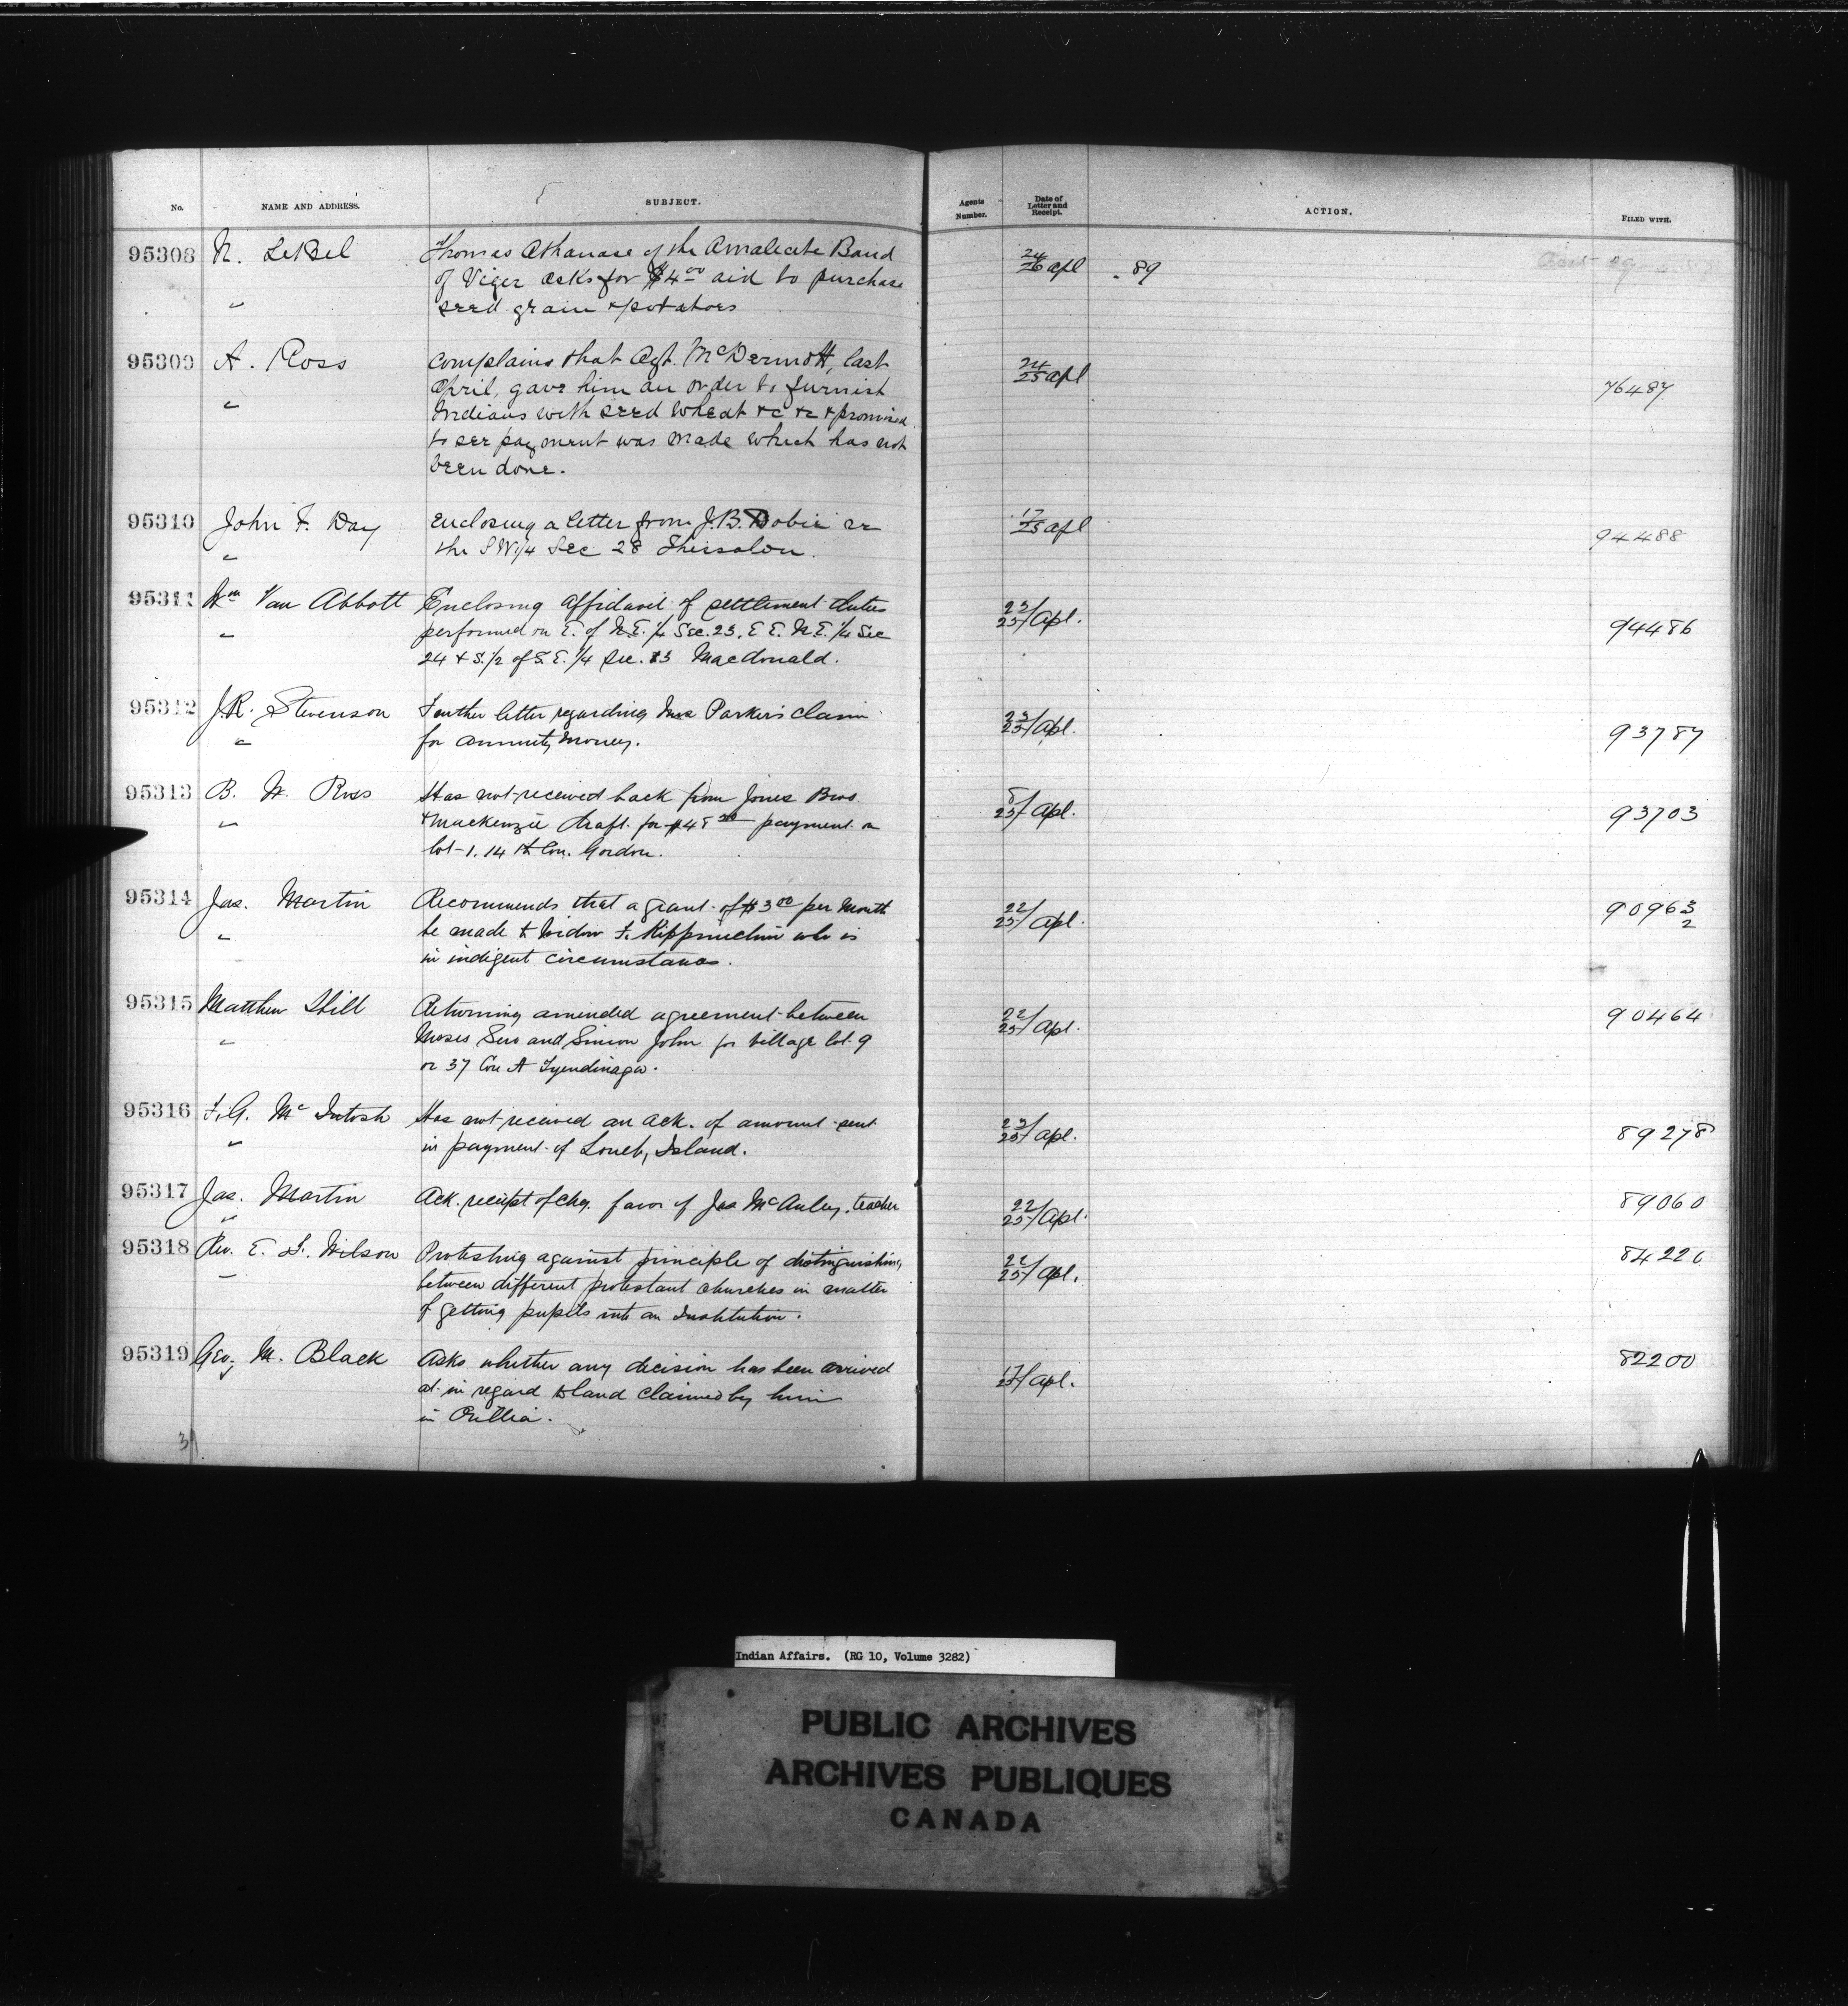 No. NAME AND ADDRESS. SUBJECT. Agents Number. Date of Letter and Receipt. ACTION. FILED WITH.
95308 N. LeBel Thomas Athanase of the Amalecite Band 24/26 apl . 89
of Viger asks for $4.00 aid to purchase
" seed grain & potatoes
95309 A. Ross Complains that Agt. McDermott, last 24/25 apl 76487
April, gave him an order to furnish
" Indians with seed wheat &c &c & promised
to see payment was made which has not
been done.
95310 John F. Day Enclosing a letter from J.B. Dobie re 17/25 apl 94488
" the S W 1/4 Sec 28
95311 Wm Van Abbott Enclosing affidavit of settlement duties 23/25 Apl. 94486
" performed on E. of N.E. 1/4 Sec. 23, E E. N.E. 1/4 Sec
24 & S. 1/2 of S. E. 1/4 Sec. 13 Macdonald.
95312 J.R. Stevenson Further letter regarding Mrs Parker's claim 23/25 Apl. 93787
" for annuity money.
95313 B. W. Ross Has not received back from Jones Bros 8/25 Apl. 93703
" & Mackenzie draft for $48 payment on
lot 1. 14th Con. Gordon.
95314 Jas. Martin Recommends that a grant of $3.00 per month 22/25 Apl. 90963
2
" be made to Widow F. who is
in indigent circumstances.
95315 Matthew Hill Returning amended agreement between 22/25 Apl. 90464
" Moses Sero and Simon John for village lot 9
or 37 Con A Tyendinaga.
95316 F.G. McIntosh Has not received an ack. of amount sent 23/25 Apl. 89278
" in payment of Lonely Island.
95317 Jas. Martin Ack. receipt of chq. favor of Jas McAuley, teacher 22/25 Apl. 89060
"
95318 Rev. E. F. Wilson Protesting against principle of distinguishing 22/25 Apl. 84226
" between different protestant churches in matter
of getting pupils into an Institution.
95319 Geo. M. Black Asks whether any decision has been arrived 17/25 Apl. 82200
" at in regard to land claimed by him
in Orillia.
Indian Affairs. (RG 10, Volume 3282)
PUBLIC ARCHIVES
ARCHIVES PUBLIQUES
CANADA